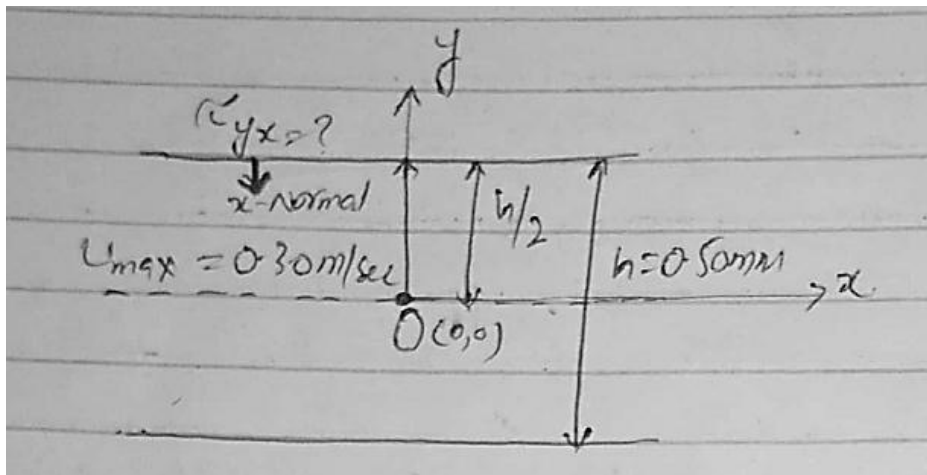 y
τyx=?
x-Normal
h/2
Umax = 0.30m/sec
h=0.50mm
x
O(0,0)